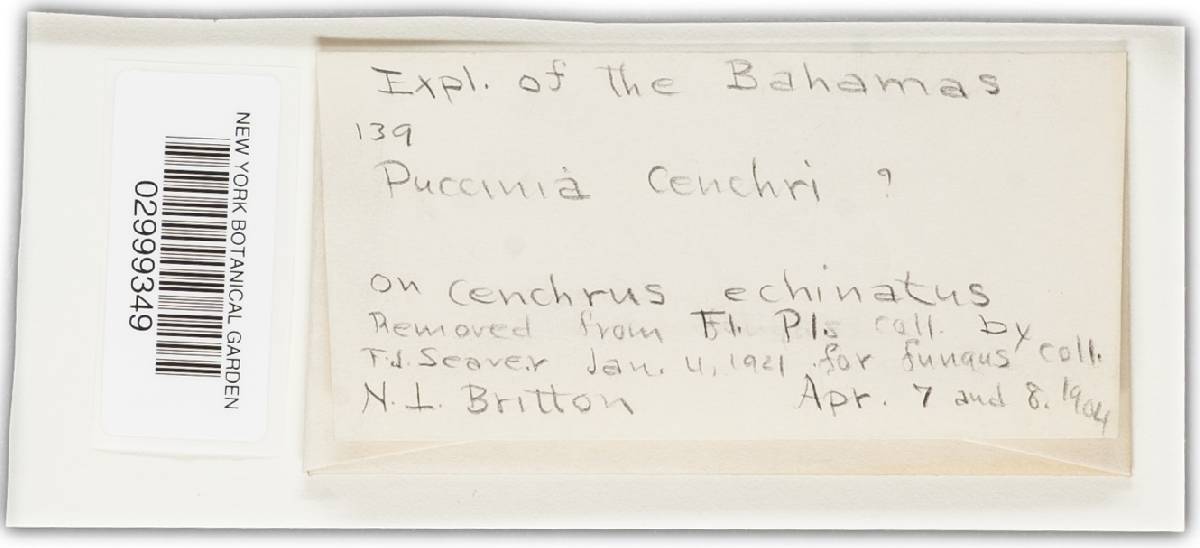 Expl. of the Bahamas
139
Puccinia Cenchri ?
on Cenchrus echinatus
Removed from Fl. Pls coll. by
F.J. Seaver Jan. 4, 1921 for fungus coll.
N. L. Britton Apr. 7 and 8. 1904
NEW YORK BOTANICAL GARDEN
02999349